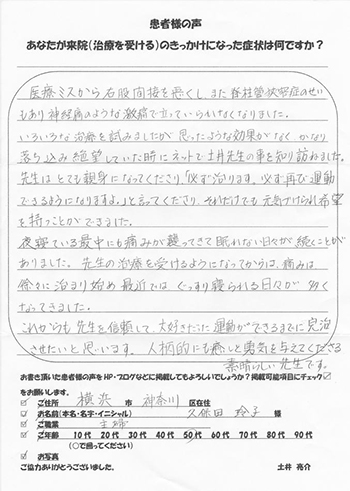 患者様の声
あなたが来院(治療を受ける)のきっかけになった症状は何ですか?
医療ミスから右股関接を悪くし また脊柱管狭窄症のせい
もあり神経痛のような激痛で立っていられなくなりました。
いろいろな治療を試みましたが 思ったような効果がなく かなり
落ち込み絶望していた時にネットで土井先生の事を知り訪ねました。
先生はとても親身になってくださり「必ず治ります。必ず再び運動
できるようになりますよ。」と言ってくださり、それだけでも元気づけられ希望
を持つことができました。
夜寝ている最中にも痛みが襲ってきて眠れない日々が続くことが
ありました。先生の治療を受けるようになってからは、痛みは
徐々に治まり始め最近では ぐっすり寝られる日々が多く
なってきました。
これからも先生を信頼して、大好きだった運動ができるまでに完治
させたいと思います。人柄的にも癒しと勇気を与えてくださる
素晴らしい先生です。
お書き頂いた患者様の声をHP・ブログなどに掲載してもよろしいでしょうか?掲載可能項目にチェック☑
をお願いします。
☑ ご住所 横浜 市 神奈川 区在住
☑ お名前(本名・名字・イニシャル) 久保田 玲子 様
☑ ご職業 主婦
☑ ご年齢 10代 20代 30代 40代 50代 60代 70代 80代 90代
(○で囲ってください)
☑ お写真
ご協力ありがとうございました。 土井 亮介